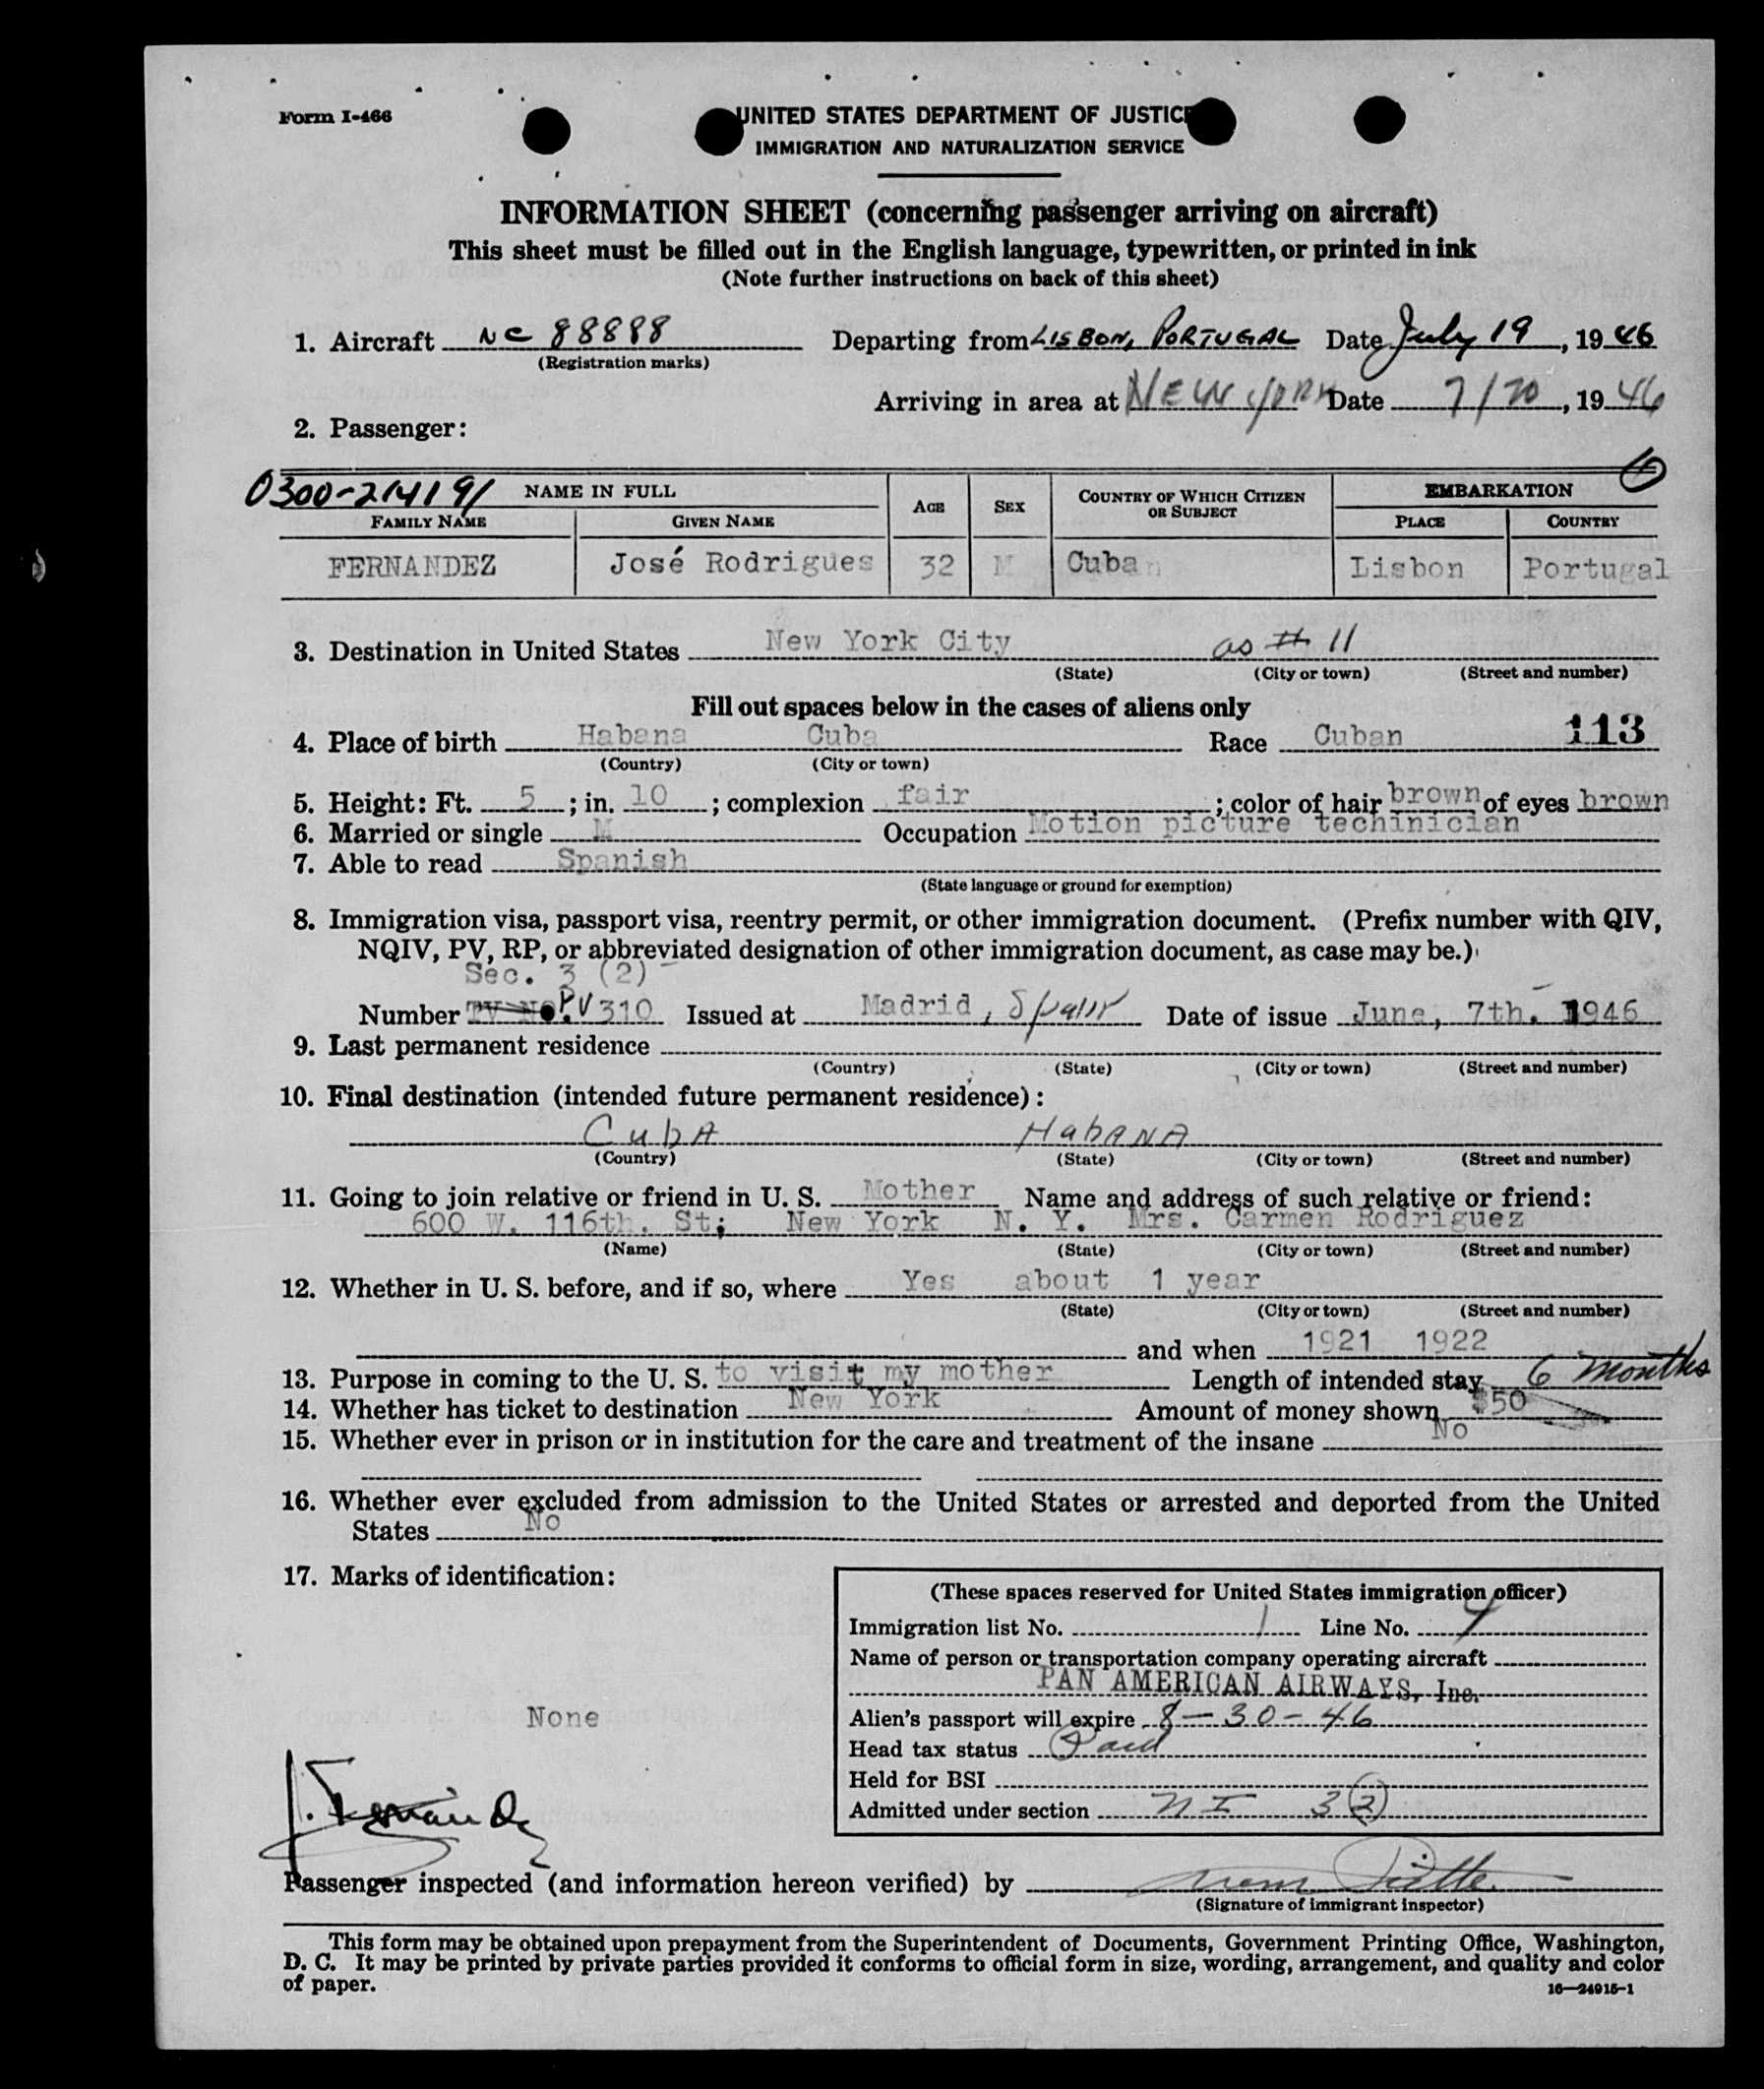 Form I-466
UNITED STATES DEPARTMENT OF JUSTICE
IMMIGRATION AND NATURALIZATION SERVICE
INFORMATION SHEET (concerning passenger arriving on aircraft)
This sheet must be filled out in the English language, typewritten, or printed in ink
(Note further instructions on back of this sheet)
1. Aircraft NC 88888 Departing from LISBON, PORTUGAL Date July 19, 1946
(Registration marks)
Arriving in area at NEW YORK Date 7/20, 1946
2. Passenger:
0300-214191 NAME IN FULL AGE SEX COUNTRY OF WHICH CITIZEN OR SUBJECT EMBARKATION
FAMILY NAME GIVEN NAME PLACE COUNTRY
FERNANDEZ José Rodrigues 32 M Cuban Lisbon Portugal
3. Destination in United States New York City as # 11
(State) (City or town) (Street and number)
Fill out spaces below in the cases of aliens only
4. Place of birth Habana Cuba Race Cuban 113
(Country) (City or town)
5. Height: Ft. 5; in. 10; complexion fair; color of hair brown of eyes brown
6. Married or single M Occupation Motion picture techinician
7. Able to read Spanish
(State language or ground for exemption)
8. Immigration visa, passport visa, reentry permit, or other immigration document. (Prefix number with QIV,
NQIV, PV, RP, or abbreviated designation of other immigration document, as case may be.)
Sec. 3 (2)
Number PV 310 Issued at Madrid, Spain Date of issue June, 7th. 1946
9. Last permanent residence
(Country) (State) (City or town) (Street and number)
10. Final destination (intended future permanent residence):
Cuba Habana
(Country) (State) (City or town) (Street and number)
11. Going to join relative or friend in U. S. Mother Name and address of such relative or friend:
600 W. 116th. St; New York N. Y. Mrs. Carmen Rodriguez
(Name) (State) (City or town) (Street and number)
12. Whether in U. S. before, and if so, where Yes about 1 year
(State) (City or town) (Street and number)
and when 1921 1922
13. Purpose in coming to the U. S. to visit my mother Length of intended stay 6 months
14. Whether has ticket to destination New York Amount of money shown $50
15. Whether ever in prison or in institution for the care and treatment of the insane No
16. Whether ever excluded from admission to the United States or arrested and deported from the United
States No
17. Marks of identification:
None
(These spaces reserved for United States immigration officer)
Immigration list No. 1 Line No. 7
Name of person or transportation company operating aircraft
PAN AMERICAN AIRWAYS, Inc.
Alien's passport will expire 8-30-46
Head tax status Paid
Held for BSI
Admitted under section NI 3(2)
Passenger inspected (and information hereon verified) by
(Signature of immigrant inspector)
This form may be obtained upon prepayment from the Superintendent of Documents, Government Printing Office, Washington,
D. C. It may be printed by private parties provided it conforms to official form in size, wording, arrangement, and quality and color
of paper.
16—24915-1